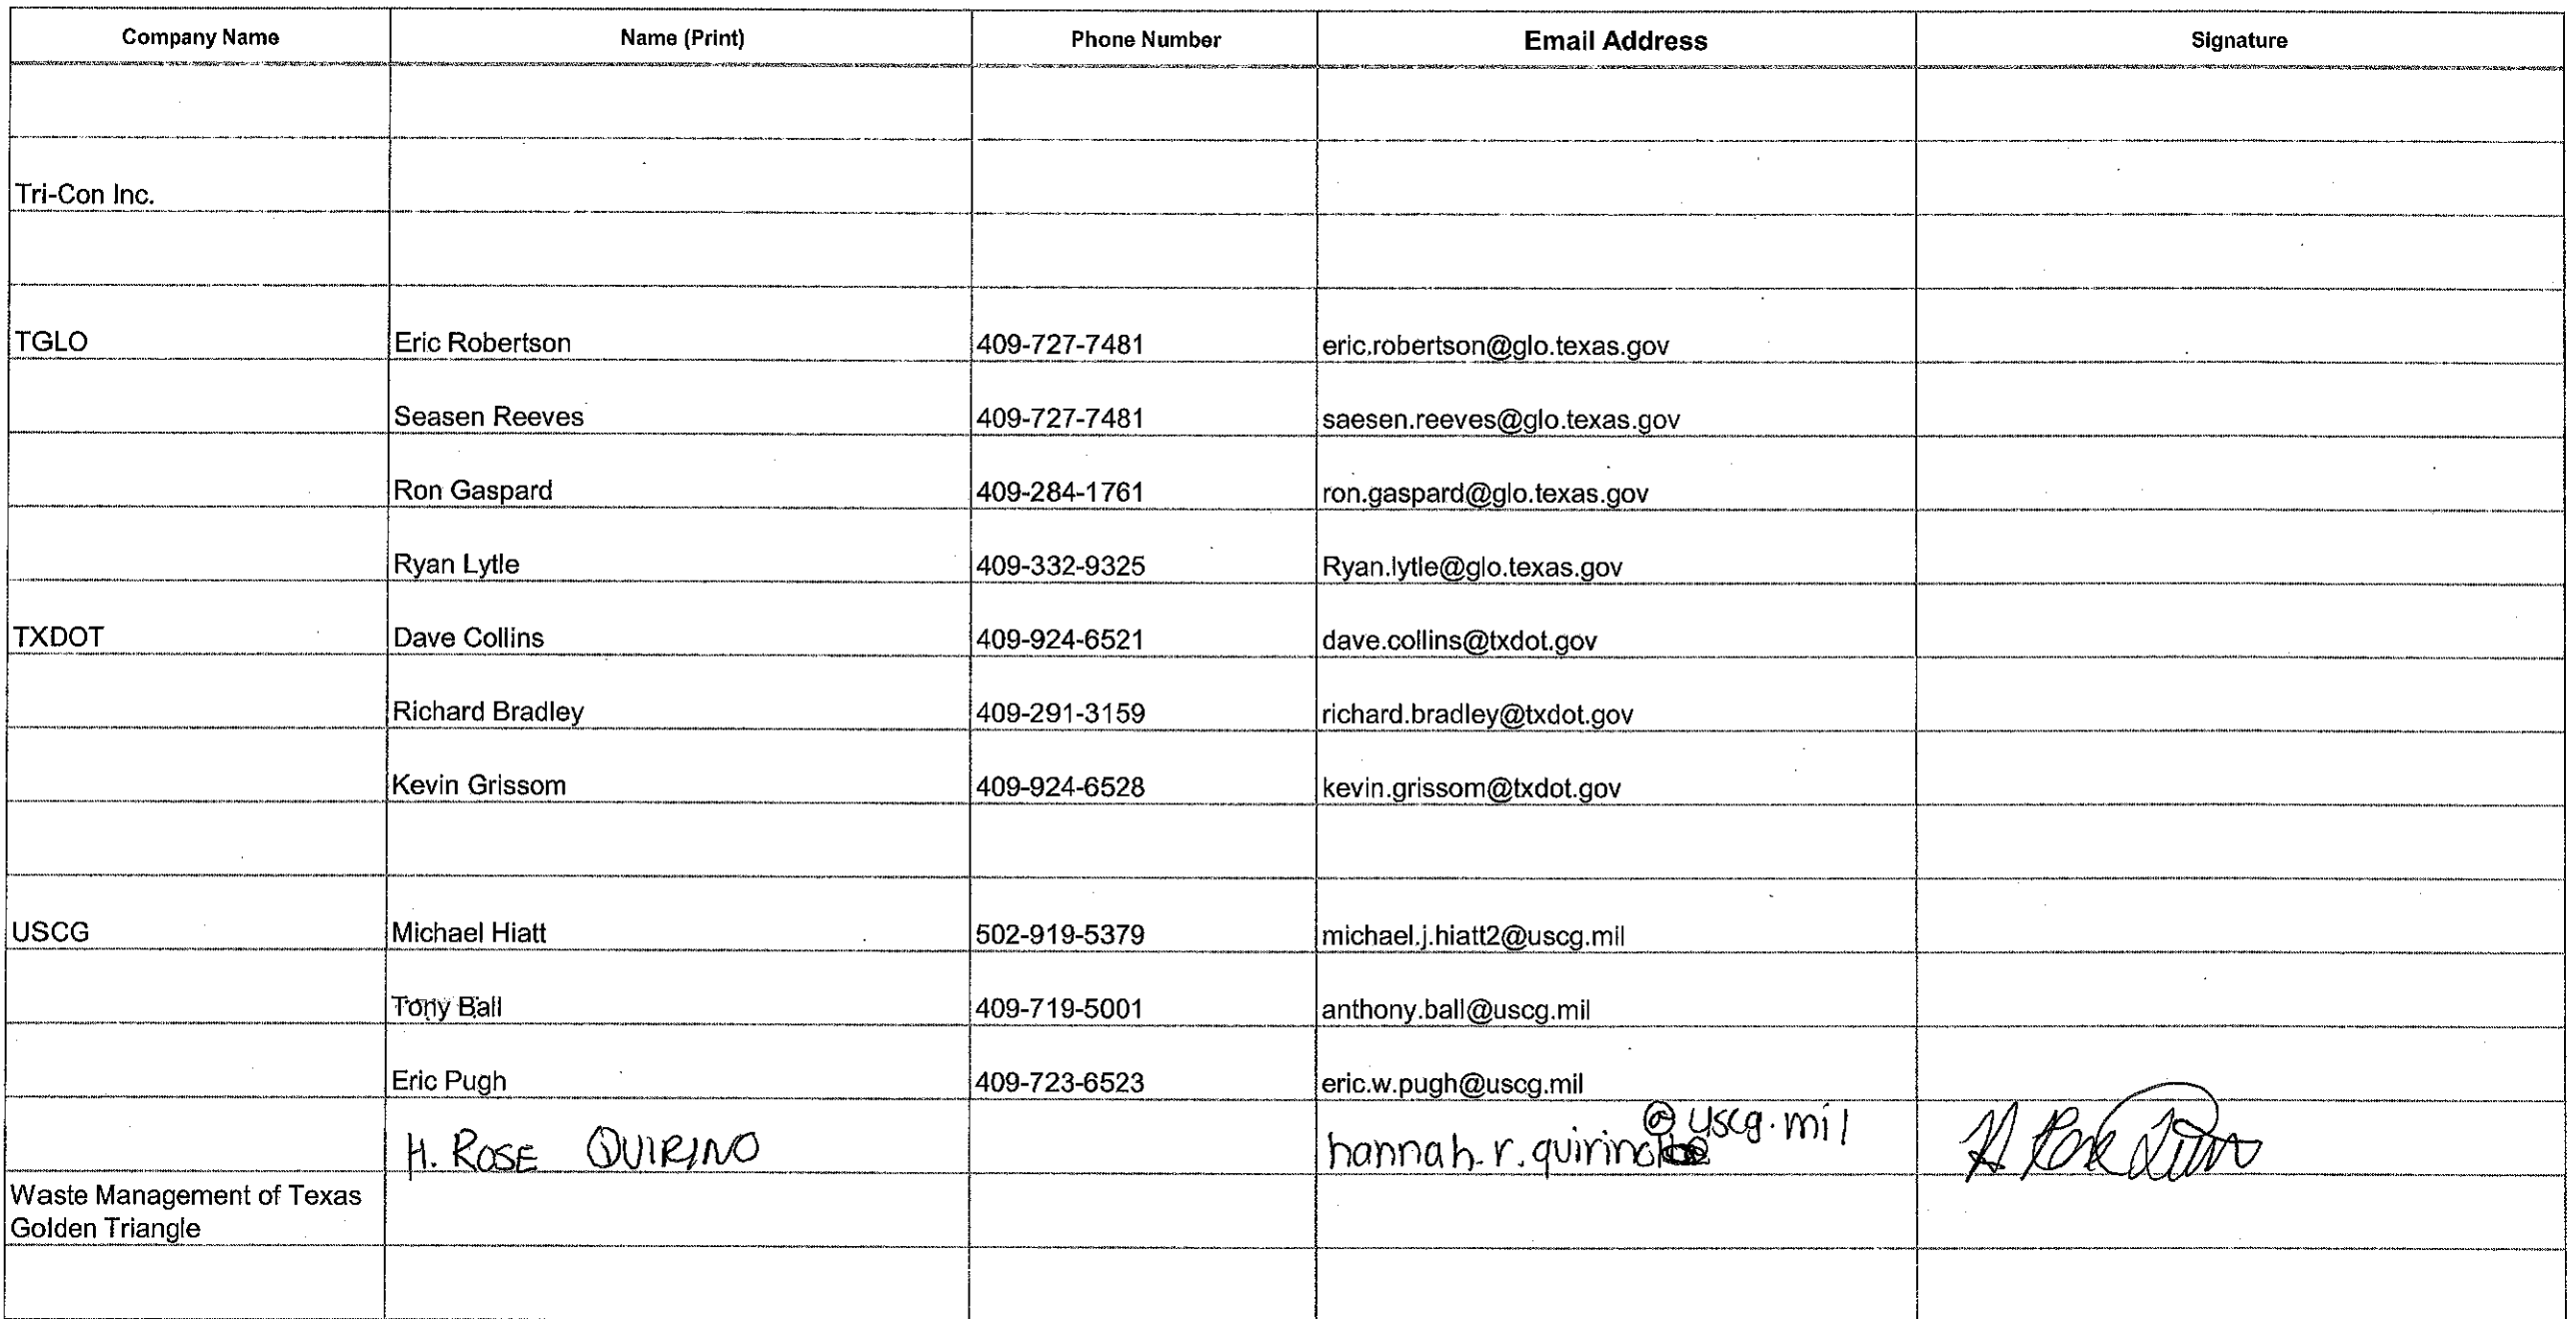 Company Name Name (Print) Phone Number Email Address Signature
Tri-Con Inc.
TGLO Eric Robertson 409-727-7481 eric.robertson@glo.texas.gov
Seasen Reeves 409-727-7481 saesen.reeves@glo.texas.gov
Ron Gaspard 409-284-1761 ron.gaspard@glo.texas.gov
Ryan Lytle 409-332-9325 Ryan.lytle@glo.texas.gov
TXDOT Dave Collins 409-924-6521 dave.collins@txdot.gov
Richard Bradley 409-291-3159 richard.bradley@txdot.gov
Kevin Grissom 409-924-6528 kevin.grissom@txdot.gov
USCG Michael Hiatt 502-919-5379 michael.j.hiatt2@uscg.mil
Tony Ball 409-719-5001 anthony.ball@uscg.mil
Eric Pugh 409-723-6523 eric.w.pugh@uscg.mil
H. ROSE QUIRINO hannah.r.quirino @uscg.mil H Rose
Waste Management of Texas
Golden Triangle